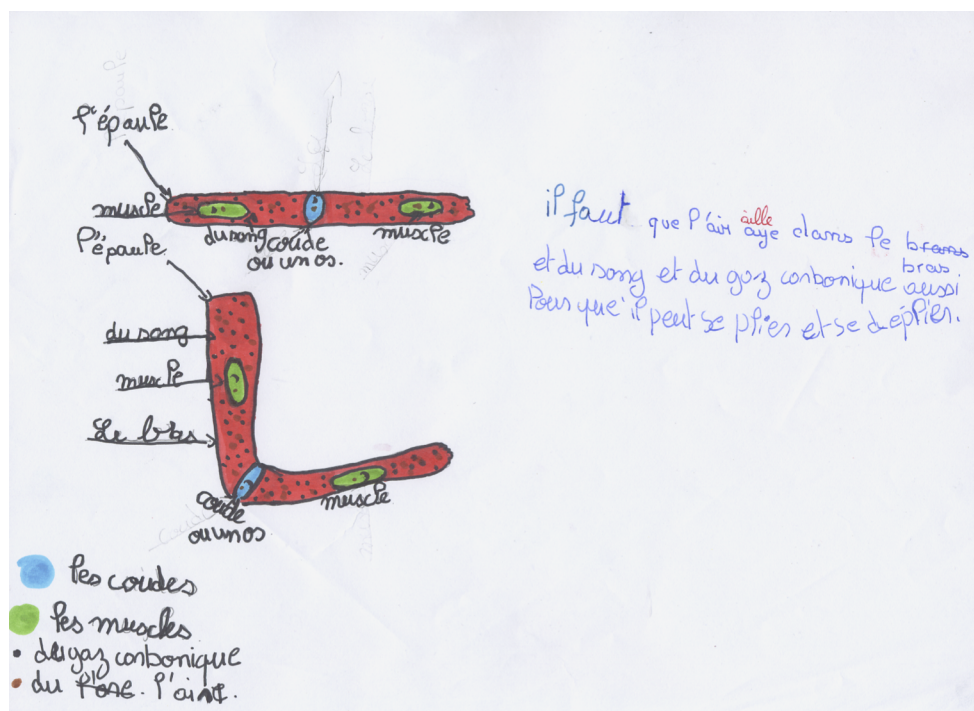 l'épaule
muscle
du sang
coude
ou un os.
muscle
l'épaule
du sang
muscle
Le bras
coude
ou un os
muscle
les coudes
les muscles
du gaz carbonique
du l'air.
il faut que l'air aille aye dans le
bras
et du sang et du gaz carbonique aussi
Pour que il peut se plier et se déplier.